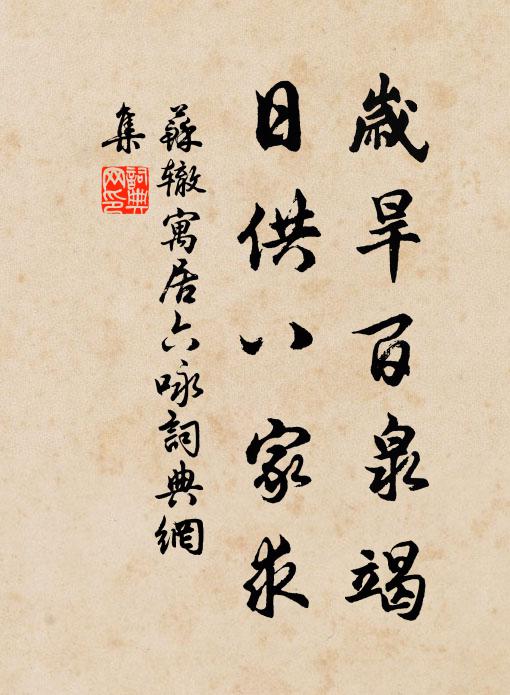 歲旱百泉竭
日供八家求
蘇辙寓居六咏詞典網
集
詞典
网印